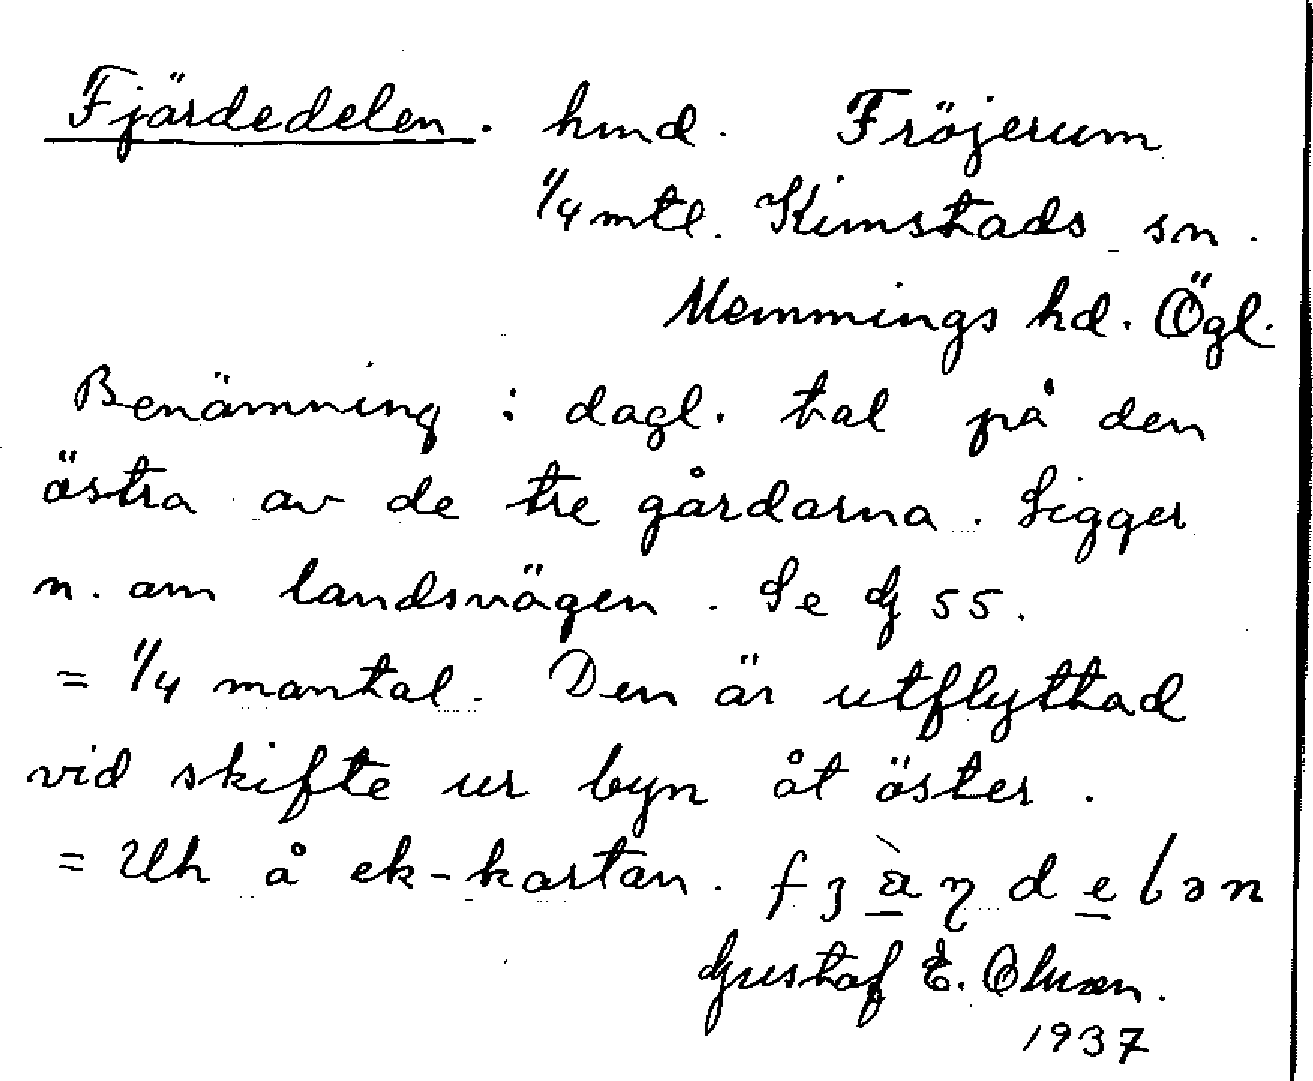 Fjärdedelen. hmd. Fröjerum
1/4 mtl. Kimstads sn.
Memmings hd. Ögl.
Benämning i dagl. tal på den
östra av de tre gårdarna. Ligger
n. om landsvägen. Se G 55.
= 1/4 mantal. Den är utflyttad
vid skifte ur byn åt öster.
= Uh å ek-kartan.
Gustaf E.
1937